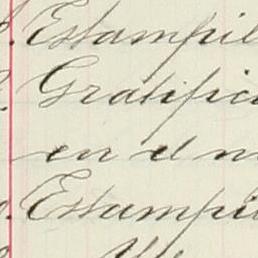 Estampil
Gratific
en el m
Estampil